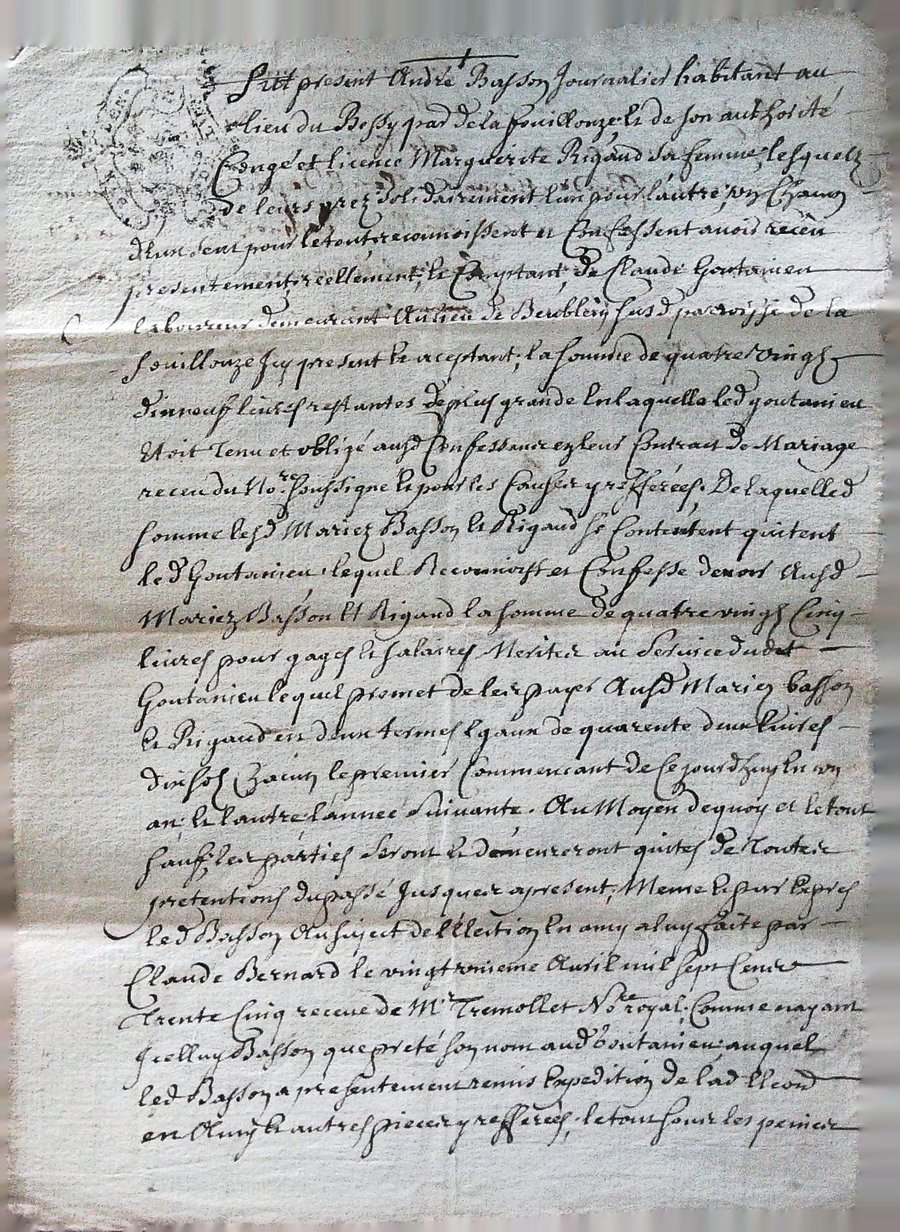 Fut present André Basson Journalier habitant au
lieu du Bossy par de la fouillouze & de son authorité
Congé et licence Marguerite Rigaud sa femme, lesquelz
de leurs grez solidairement l'un pour l'autre, un Chacun
d'eux seul pour le tout reconnoissent et Confessent avoir receu
presentement, reellement, & Comptant, de Claude Goutanieu
laboureur demeurant Au lieu de susd. parroisse de la
fouillouze Icy present & aceptant, la somme de quatre vingtz
dixneuf livres restantes de plus grande En laquelle led goutanieu
Etoit Tenu et obligé ausd Confessantz en leur Contract de Mariage
receu du No.re soussigne & pour les Causes y refferées. De laquelle d
somme lesd Mariez Basson & Rigaud se Contentent quitent
led Goutanieu, lequel Reconnoist et Confesse devoir Ausd
Mariez Basson Et Rigaud la somme de quatre vingtz Cinq
livres pour gages & salaires Meritez au Service dudit
Goutanieu lequel promet de les payer Ausd Mariez basson
& Rigaud en deux termes Egaux de quarente deux livres
dix sols Chacun le premier Commencant de Ce jourdhuy En un
an & l'autre l'année Suivante. Au Moyen de quoy et le tout
sauf les parties Seront & demeureront quites de Toutes
pretentions du passé Jusques a present, Meme
led Basson Au suject de l'Election En amy a luy faite par
Claude Bernard le vingt unieme Avril mil sept Centz
Trente Cinq receue de M.r Tremollet No.re royal, Comme nayant
Icelluy Basson que preté son nom aud Goutanieu auquel
led Basson a presentement remis Expedition de lad Elcõn
en Amy & autres pieces y refferées, le tout sous les peines